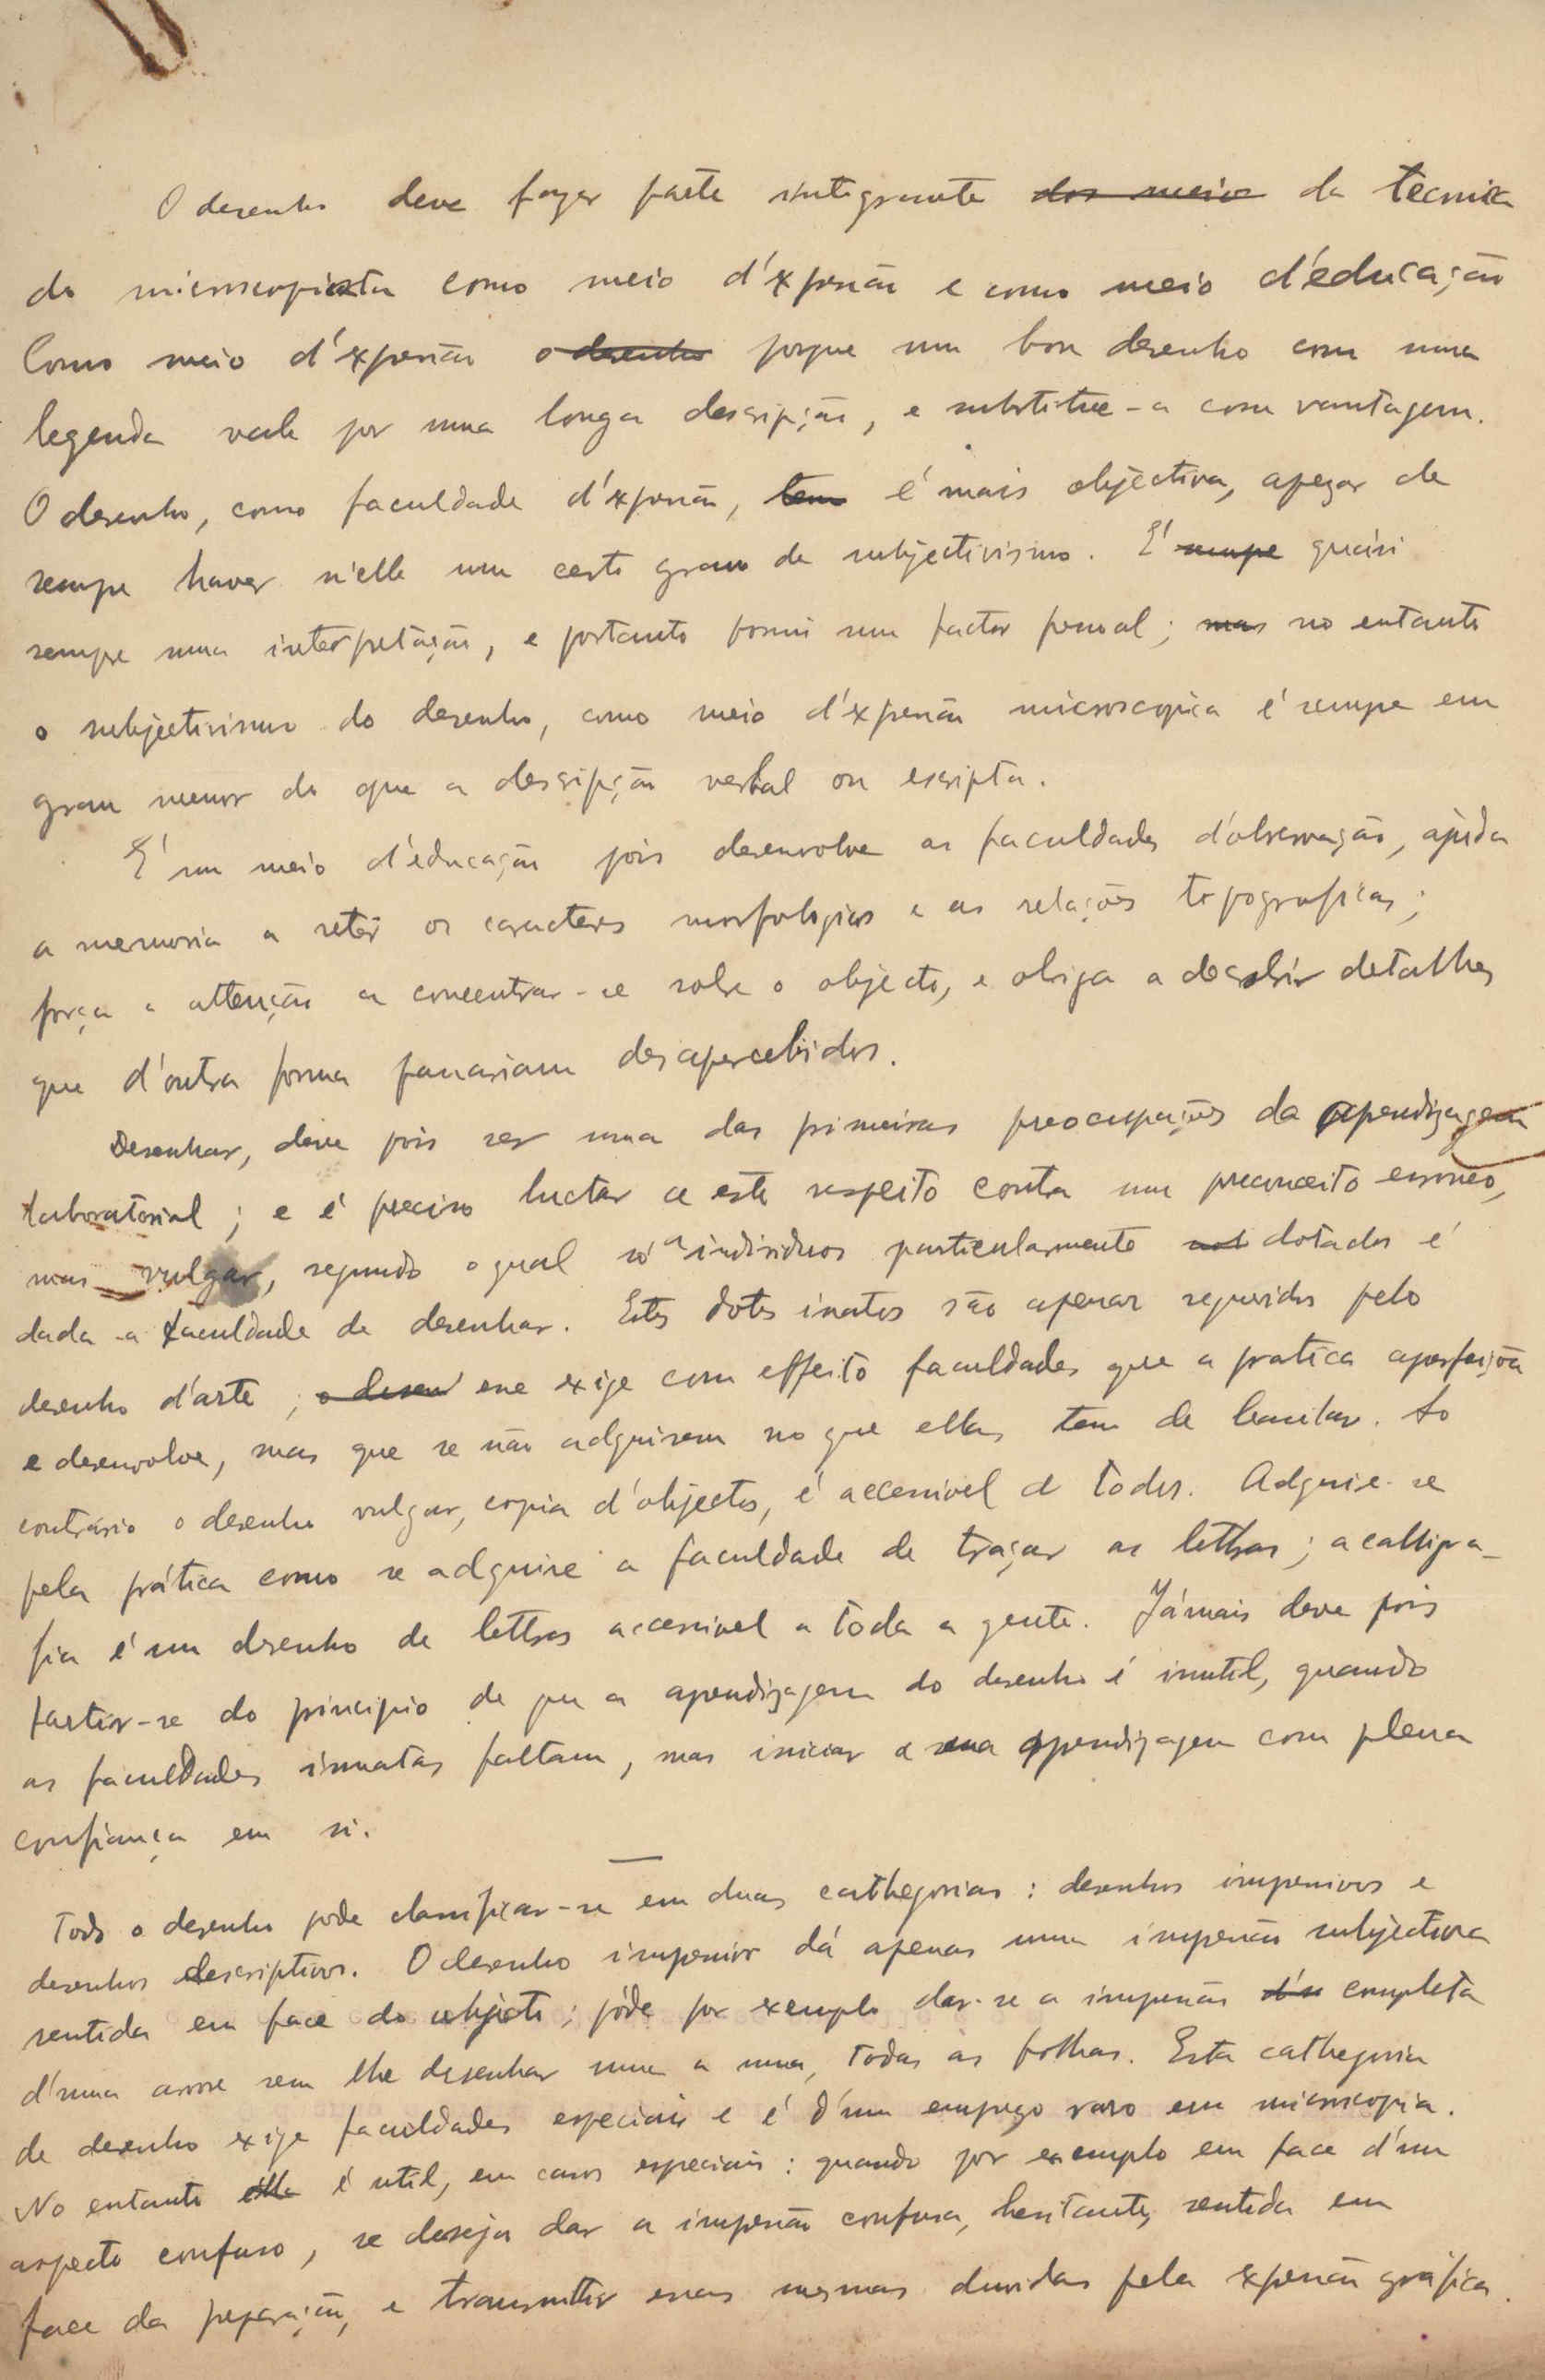 O desenho deve fazer parte integrante dos meios da tecnica
do microscopista como meio d'expressão e como meio d'educação
Como meio d'expressão o desenho porque um bom desenho com uma
legenda vale por uma longa descripção, e substitue-a com vantagem.
O desenho, como faculdade d'expressão, tem é mais objectiva, apezar de
sempre haver n'elle um certo grau de subjectivismo. É sempre quási
sempre uma interpretação, e portanto possui um factor pessoal; mas no entanto
o subjectivismo do desenho, como meio d'expressão microscopica é sempre em
grau menor do que a descripção verbal ou escripta.
É um meio d'educação pois desenvolve as faculdades d'observação, ajuda
a memoria a reter os caracteres morfologicos e as relações topograficas;
força a attenção a concentrar-se sobre o objecto, e obriga a descobrir detalhes
que d'outra forma passariam desapercebidos.
Desenhar, deve pois ser uma das primeiras preocupações da aprendizagem
laboratorial; e é preciso luctar a este respeito contra um preconceito erroneo,
mas vulgar, segundo o qual só a individuos particularmente dotados é
dada a faculdade de desenhar. Estes dotes inatos são apenas requeridos pelo
desenho d'arte; o desen esse exige com effeito faculdades que a pratica aperfeiçoa
e desenvolve, mas que se não adquirem no que ellas tem de basilar. Ao
contrário o desenho vulgar, copia d'objectos, é accessivel a todos. Adquire-se
pela prática como se adquire a faculdade de traçar as lettras; a calligra-
fia é um desenho de lettras accessivel a toda a gente. Jámais deve pois
partir-se do principio de que a aprendizagem do desenho é inutil, quando
as faculdades innatas faltam, mas iniciar a sua aprendizagem com plena
confiança em si.
Todo o desenho pode classificar-se em duas cathegorias: desenhos impressivos e
desenhos descriptivos. O desenho impressivo dá apenas uma impressão subjectiva
sentida em face do objecto; póde por exemplo dar-se a impressão completa
d'uma arvore sem lhe desenhar uma a uma, todas as folhas. Esta cathegoria
de desenho exige faculdades especiais e é d'um emprego raro em microscopia.
No entanto ella é util, em casos especiais: quando por exemplo em face d'um
aspecto confuso, se deseja dar a impressão confusa, hesitante, sentida em
face da preparação, e transmitir essas mesmas duvidas pela expressão gráfica.